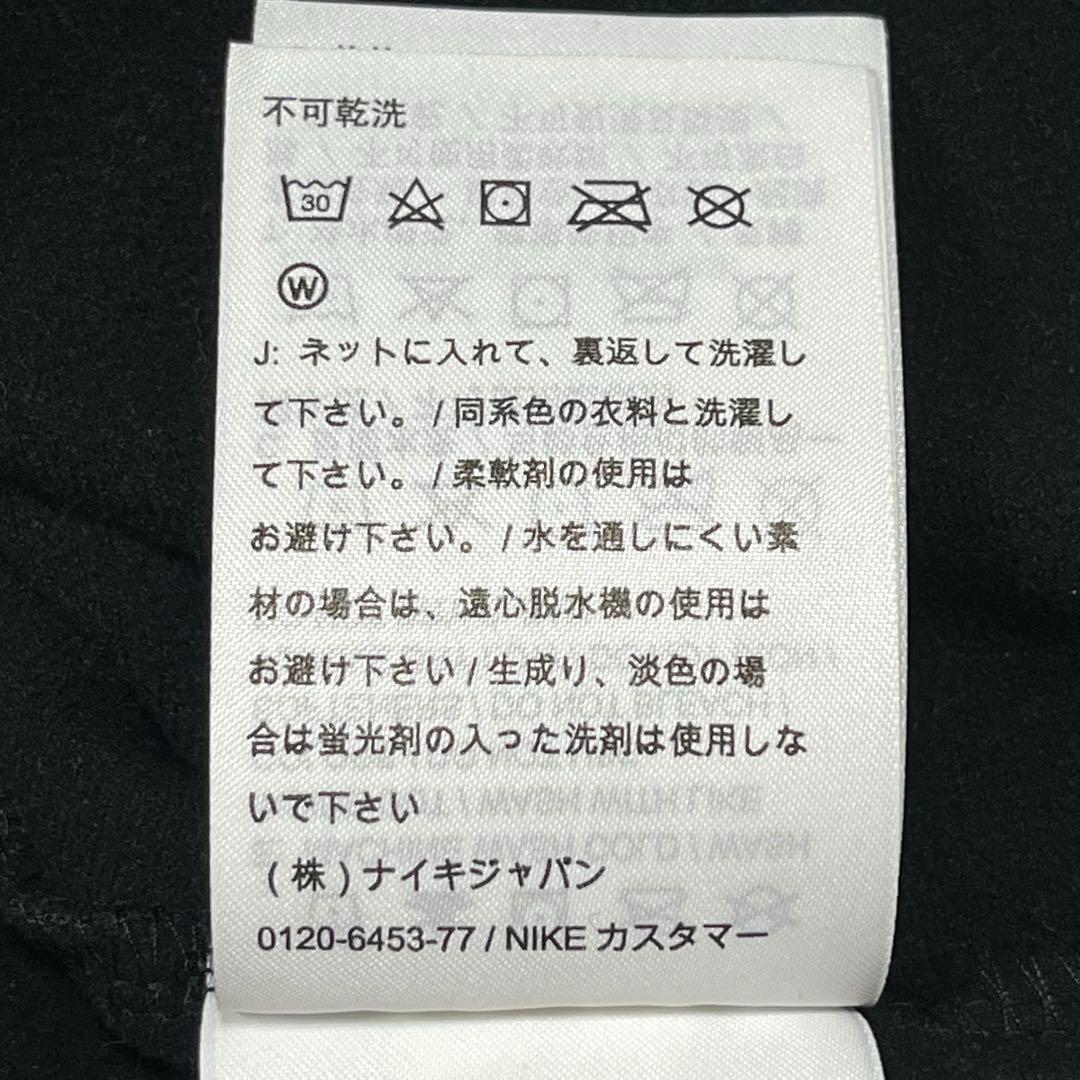 不可乾洗
30
W
J: ネットに入れて、裏返して洗濯し
て下さい。 / 同系色の衣料と洗濯し
て下さい。 / 柔軟剤の使用は
お避け下さい。 / 水を通しにくい素
材の場合は、遠心脱水機の使用は
お避け下さい / 生成り、淡色の場
合は蛍光剤の入った洗剤は使用しな
いで下さい
(株)ナイキジャパン
0120-6453-77 / NIKE カスタマー